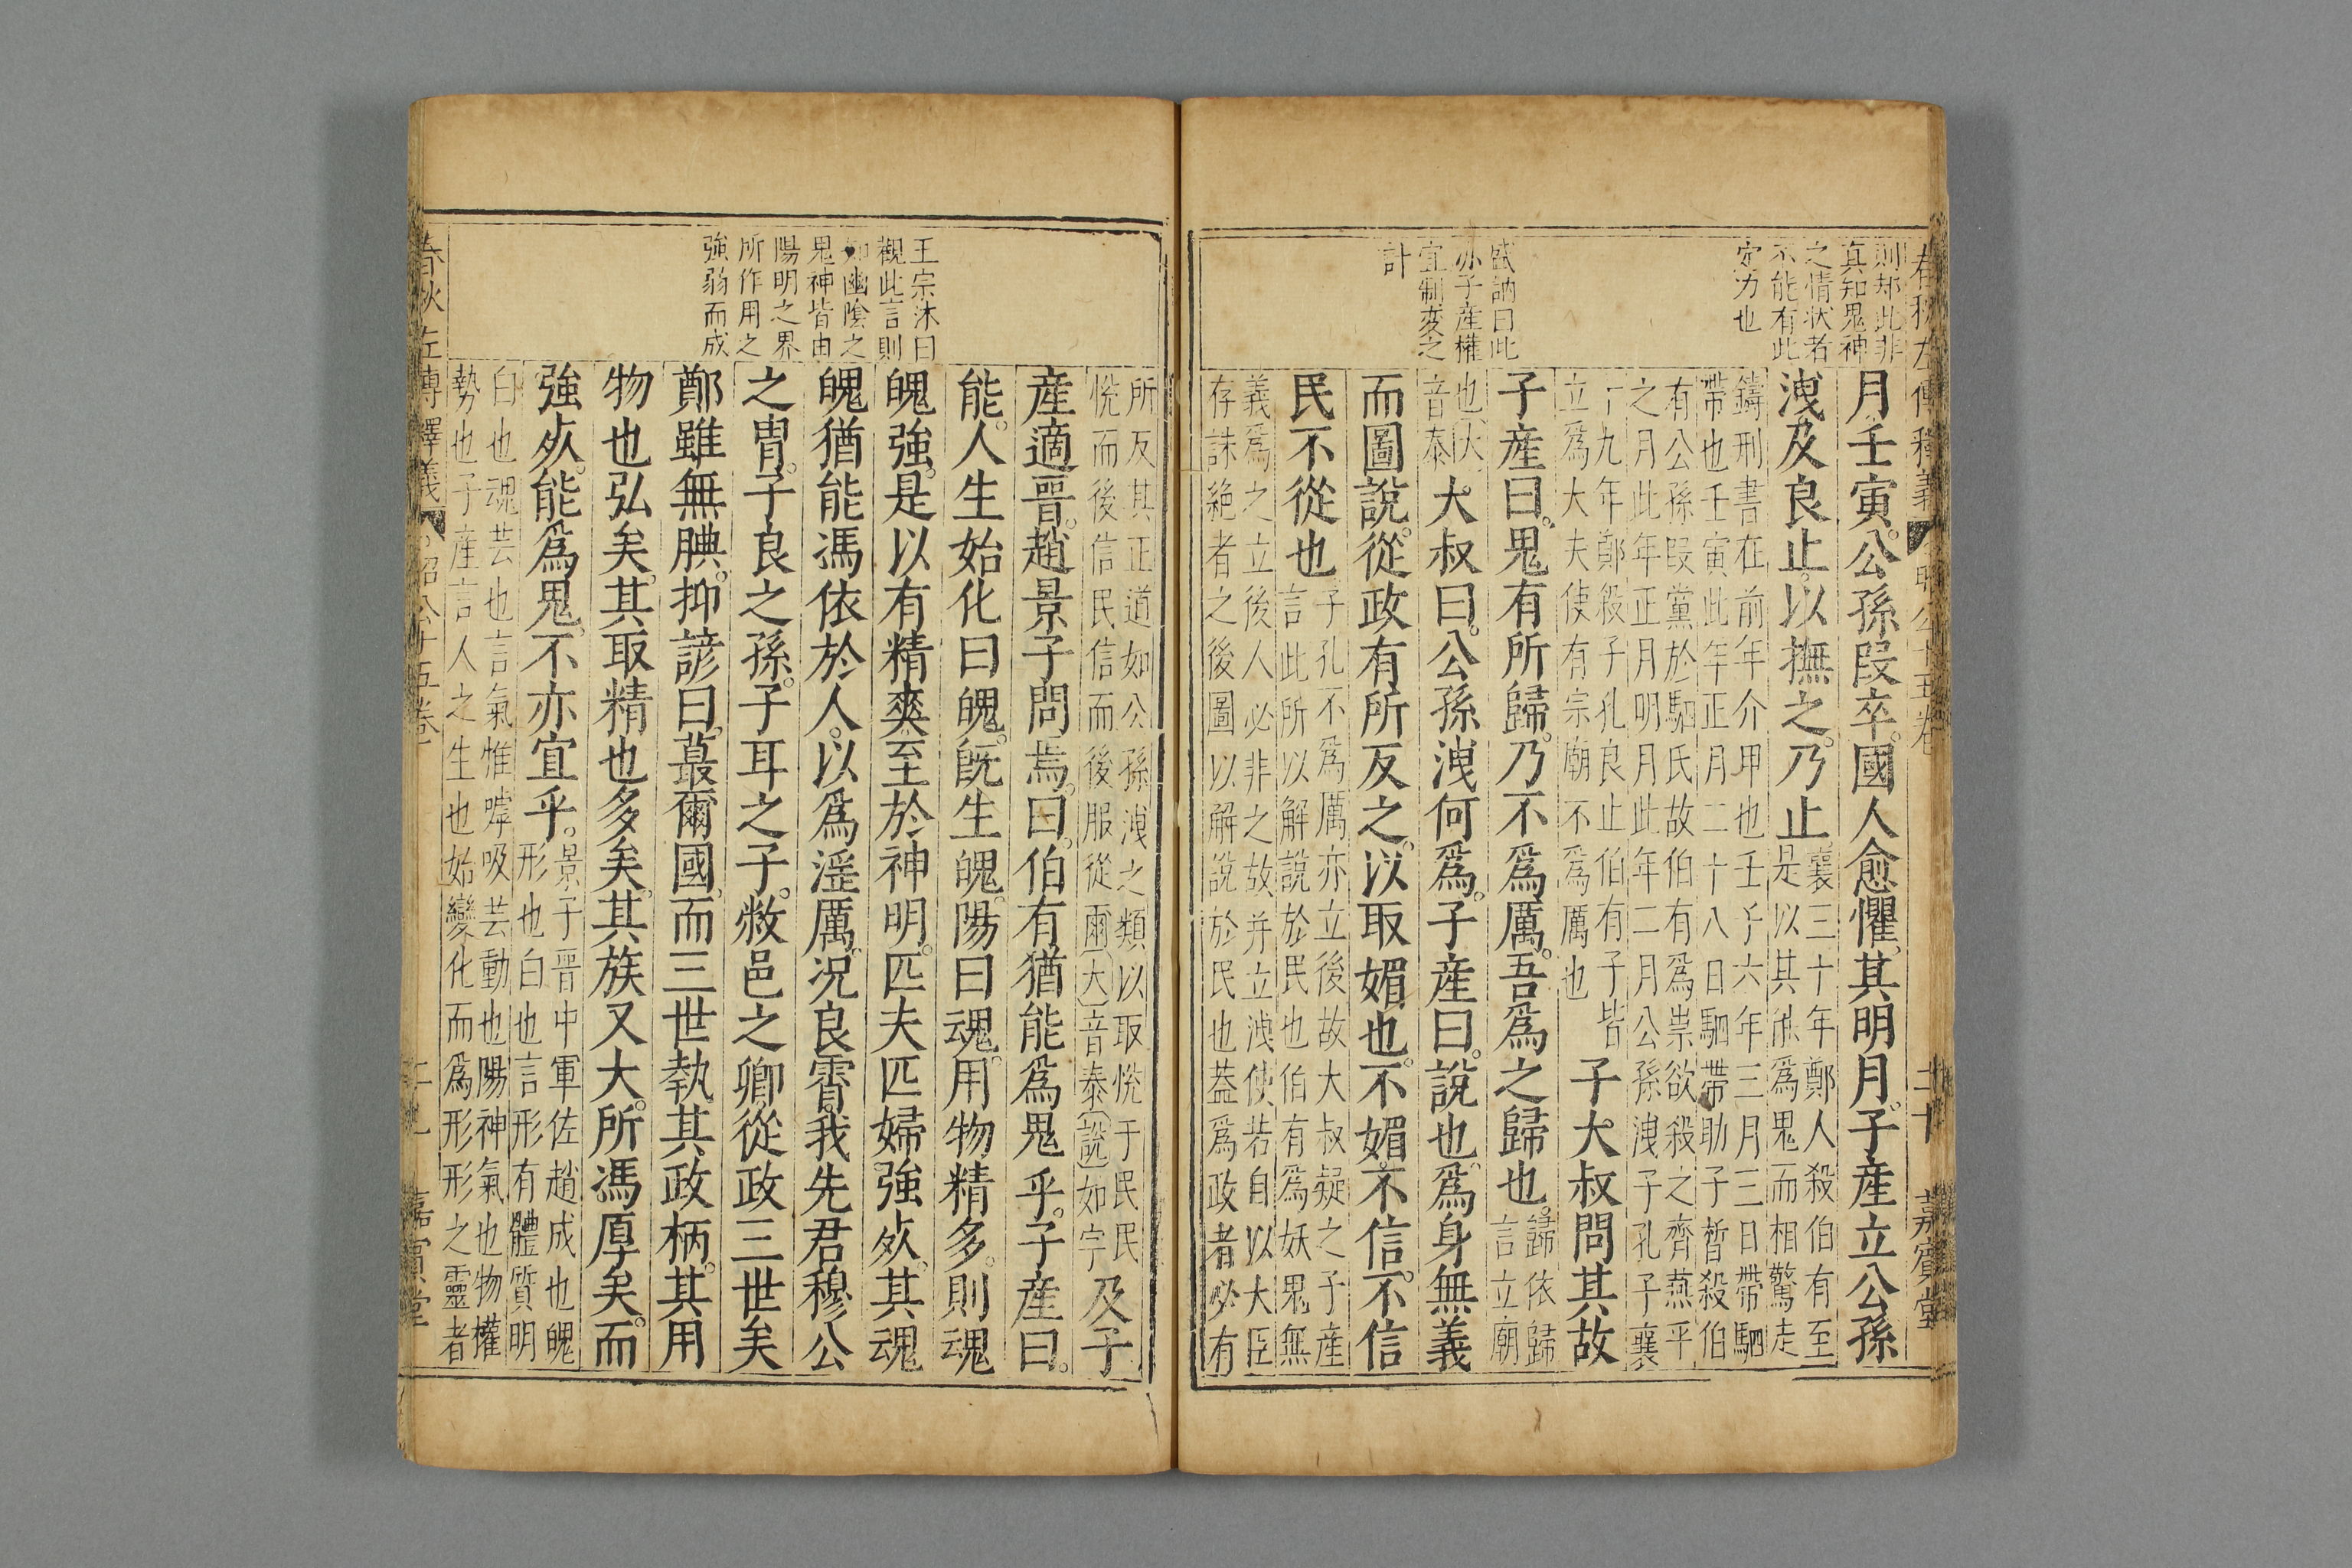 春秋左傳釋義
昭公十五卷
二十
嘉賓堂
則却此非
真知鬼神
之情狀者
不能有此
定力也
盛訥曰此
亦子產權
宜制変之
計
月壬寅公孫段卒國人愈懼其明月子產立公孫
洩及良止以撫之乃止
襄三十年鄭人殺伯有至
是以其能爲鬼而相驚走
鑄刑書在前年介甲也壬子六年三月三日帶駟
帶也壬寅此年正月二十八日駟帶助子晳殺伯
有公孫段黨於駟氏故伯有爲祟欲殺之齊燕平
之月此年正月明月此年二月公孫洩子孔子襄
十九年鄭殺子孔良止伯有子皆
立爲大夫使有宗廟不爲厲也
子大叔問其故
子產曰鬼有所歸乃不爲厲吾爲之歸也
歸依歸
言立廟
也大
音泰
大叔曰公孫洩何爲子產曰說也爲身無義
而圖說從政有所反之以取媚也不媚不信不信
民不從也
子孔不爲厲亦立後故大叔疑之子產
言此所以解說於民也伯有爲妖鬼無
義爲之立後人必非之故并立洩使若自以大臣
存誅絕者之後圖以解說於民也葢爲政者必有
所反其正道如公孫洩之類以取悅于民民
悅而後信民信而後服從爾大音泰說如字
及子
產適晋趙景子問焉曰伯有猶能爲鬼乎子產曰
能人生始化曰魄既生魄陽曰魂用物精多則魂
魄強是以有精爽至於神明匹夫匹婦強死其魂
魄猶能馮依於人以爲淫厲况良霄我先君穆公
之胄子良之孫子耳之子敝邑之卿從政三世矣
鄭雖無腆抑諺曰蕞爾國而三世執其政柄其用
物也弘矣其取精也多矣其族又大所馮厚矣而
強死能爲鬼不亦宜乎
景子晋中軍佐趙成也魄
形也白也言形有體質明
白也魂芸也言氣惟嘑吸芸動也陽神氣也物權
勢也子產言人之生也始變化而爲形形之靈者
王宗沐曰
觀此言則
知幽陰之
鬼神皆由
陽明之界
所作用之
強弱而成
春秋左傳釋義
昭公十五卷
嘉賓堂